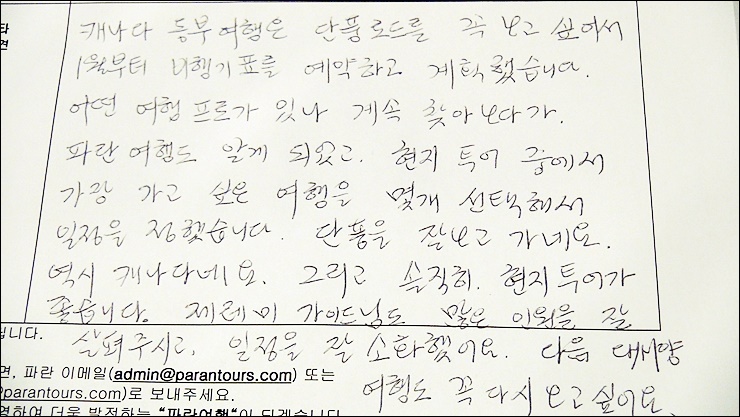 캐나다 동부여행은 단풍로드를 꼭 보고 싶어서
1월부터 비행기표를 예약하고 계획했습니다.
어떤 여행 프로가 있나 계속 찾아보다가.
파란여행도 알게 되었고. 현지 투어 중에서
가장 가고 싶은 여행을 몇개 선택해서
일정을 정했습니다. 단풍을 잘보고 가네요.
역시 캐나다네요. 그리고 솔직히. 현지투어가
좋습니다. 제레미 가이드님도 많은 인원을 잘
살펴주시고, 일정을 잘 소화했어요. 다음 대서양
여행도 꼭 다시 오고싶어요
타
견
됩니다.
면, 파란 이메일(admin@parantours.com) 또는
parantours.com)로 보내주세요.
영하여 더욱 발전하는 "파란여행"이 되겠습니다